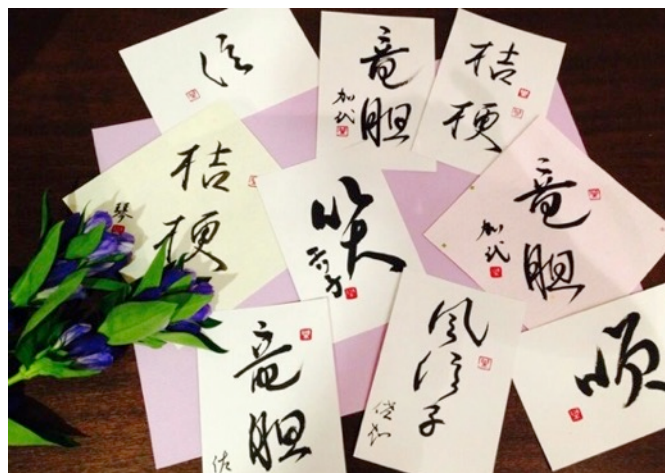 信
竜
胆
加代
桔
梗
桔
梗
琴
笑
竜
胆
加代
竜
胆
佐
風
信
子
順